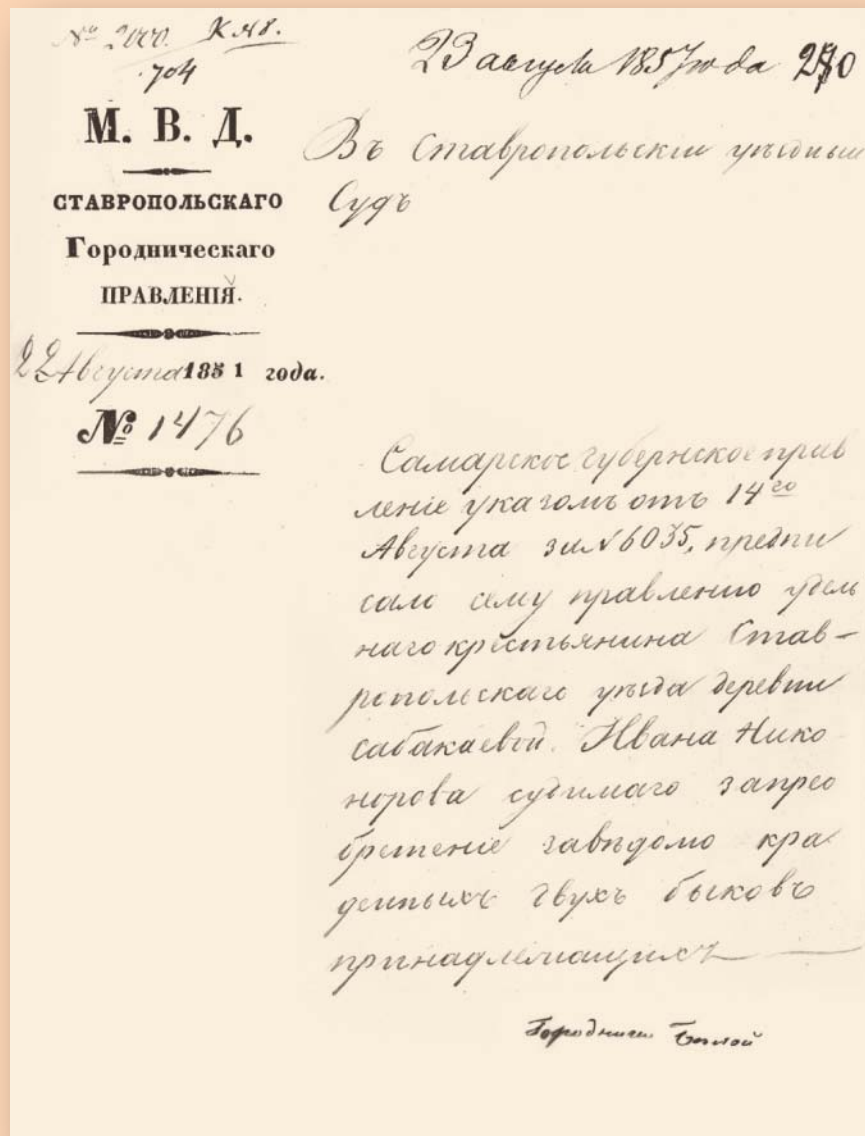 № 2000.
704
23 августа 1857 года 270
М. В. Д.
СТАВРОПОЛЬСКАГО
Городническаго
ПРАВЛЕНІЯ.
22 Августа 1851 года.
№ 1476
Въ Ставропольскій уѣздный
Судъ
Самарское губернское прав
леніе указомъ отъ 14го
Августа за № 6035, предпи
сало сему правленію удѣль
наго крестьянина Став-
ропольскаго уѣзда деревни
сабакаевой. Ивана Нико
норова судимаго за прео
бретеніе завѣдомо кра
денныхъ двухъ быковъ
принадлежащихъ
Городничій